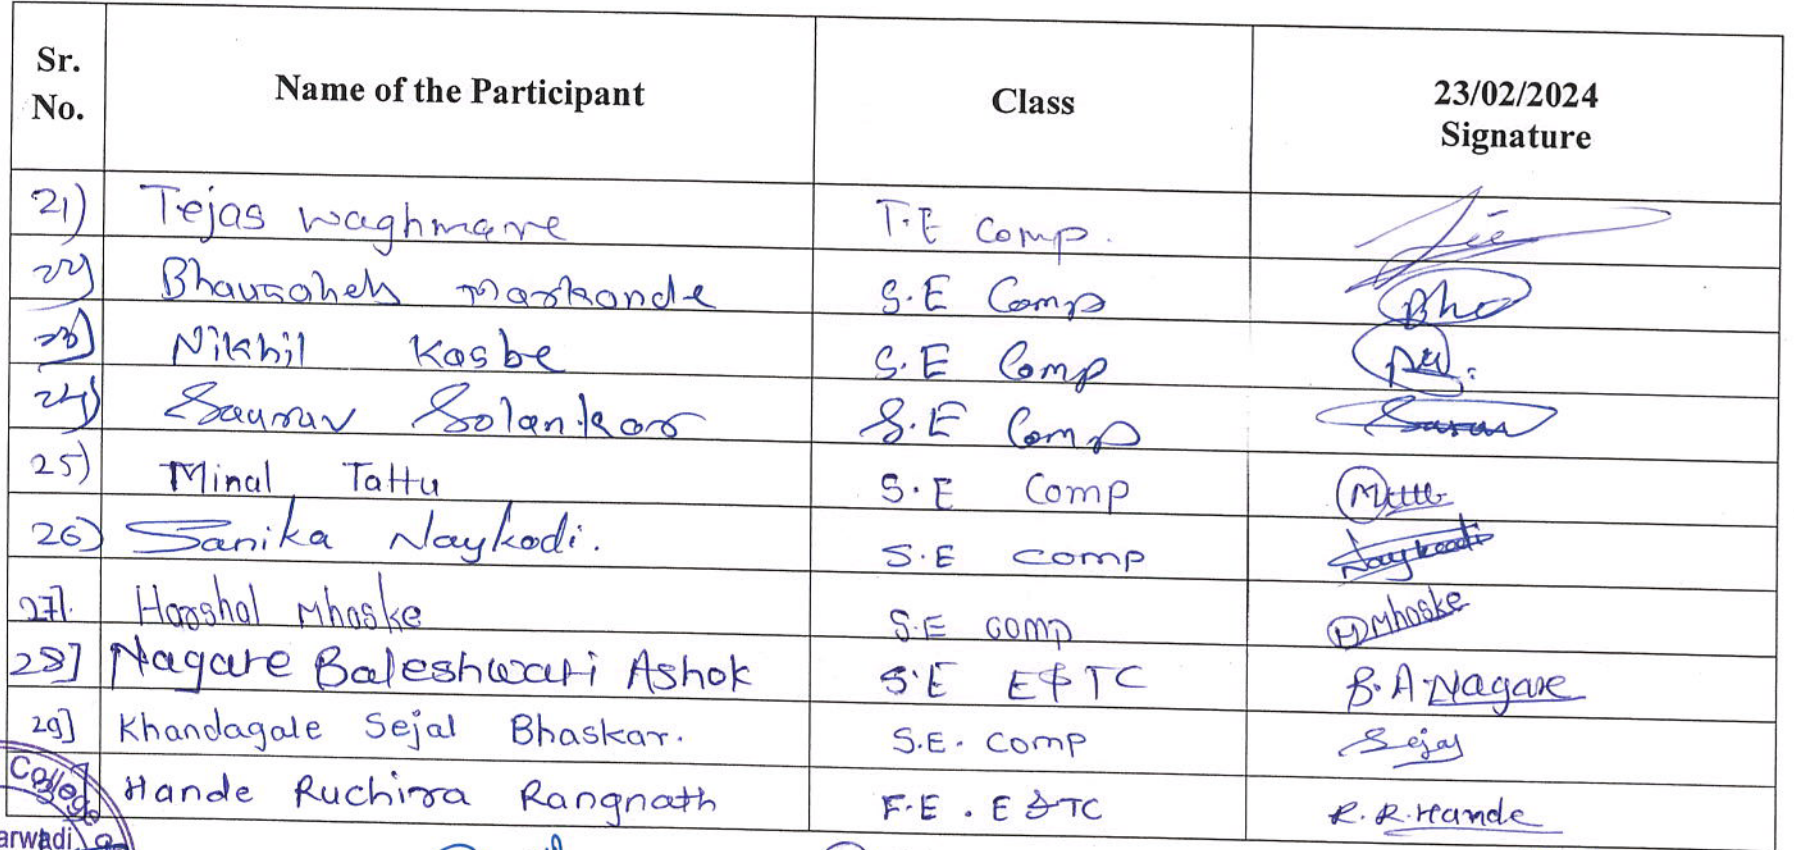 Sr. No. Name of the Participant Class 23/02/2024 Signature
21) Tejas Waghmare T.E Comp.
22) Markande S.E Comp Bha
23) Nikhil Kasbe S.E Comp
24) Saurav Solankar S.E Comp Saurav
25) Minal Tattu S.E Comp
26) Sanika Naykodi. S.E comp Naykodi
27]. Harshal Mhaske S.E comp H Mhaske
28] Nagare Baleshwari Ashok S.E E&TC B.A Nagare
29] Khandagale Sejal Bhaskar. S.E. comp Sejal
Hande Ruchira Rangnath F.E. E&TC R.R.Hande
College
arwadi